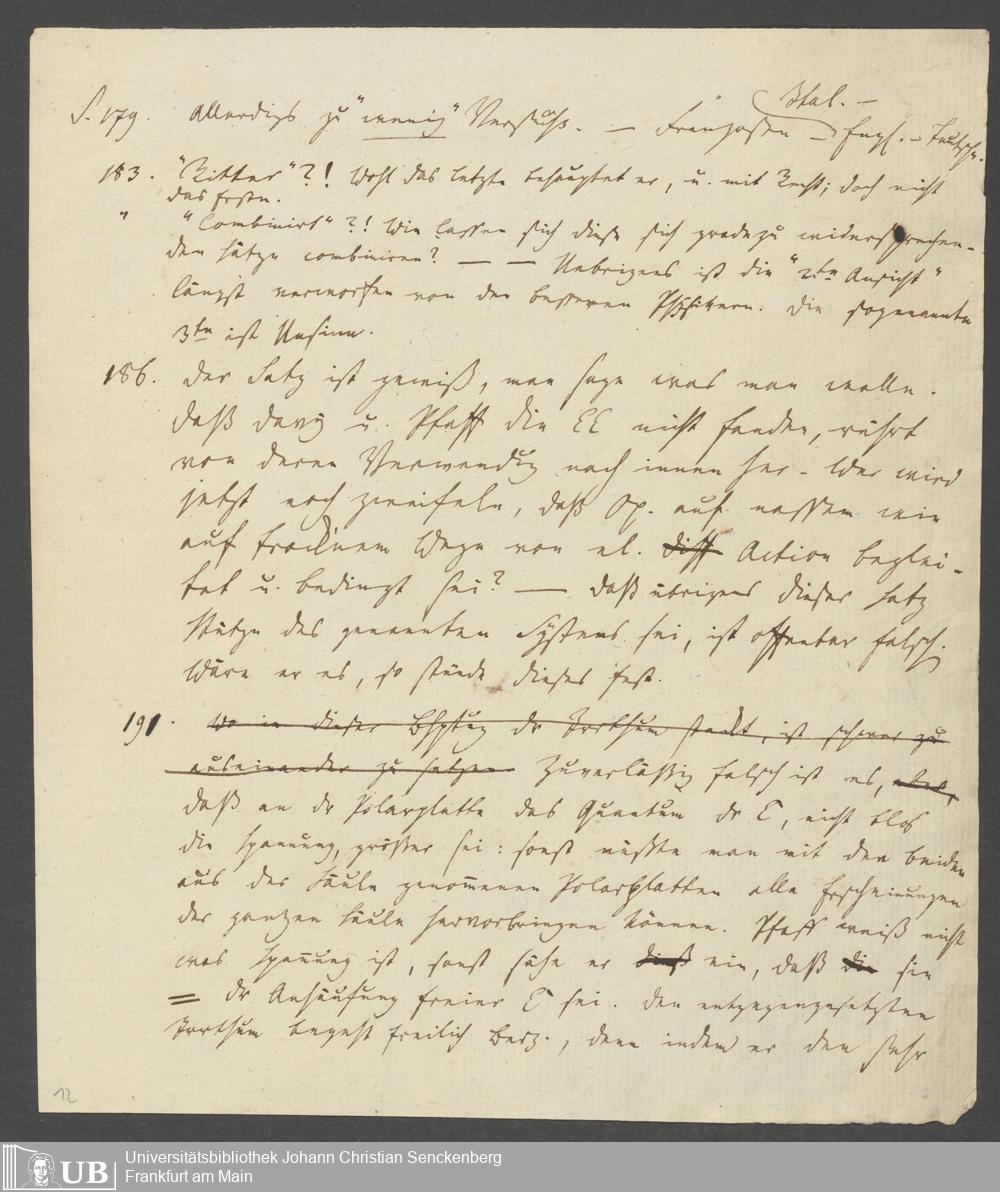 Ital. –
S. 179. Allerdigs zu "wenig" Versuche. – Franzosen – Engl. – Teutsche.
183. "Ritter"?! Wohl das letzte behauptet er, u. mit Recht; doch nicht
das Erste.
" "Combinirt"?! Wie lassen sich diese sich gradezu widersprechen-
den Sätze combiniren? — — Uebrigens ist die "2te Ansicht"
längst verworfen von den besseren Physikern. Die sogenannte
3te ist Unsinn.
186. Der Satz ist gewiß, man sage was man wolle.
Daß Davy u. Pfaff die EE nicht fanden, rührt
von deren Verwendug nach innen her. Wer wird
jetzt noch zweifeln, daß Op. auf nassem wie
auf trocknem Wege von el. diff Action beglei-
tet u. bedingt sei? — Daß übrigens dieser Satz
Stütze des genannten Systems sei, ist offenbar falsch.
Wäre er es, so stünde dieses fest.
191. Wo in dieser dr Irrthum steckt, ist schwer zu
auseinander zu setzen. Zuverläßig falsch ist es, aber,
daß an dr Polarplatte das Quantum dr E, nicht blos
die Spannung, größer sei: sonst müßte man mit den beiden
aus der Säule genom̄enen Polarplatten alle Erscheinungen
der ganzen Säule hervorbringen können. Pfaff weiß nicht
was Span̄ung ist, sonst sähe er dieß ein, daß die sie
= dr Anhäufung freier E sei. Den entgegengesetzten
Irrthum begeht freilich Berz., denn indem er den sehr
12
UB
Universitätsbibliothek Johann Christian Senckenberg
Frankfurt am Main